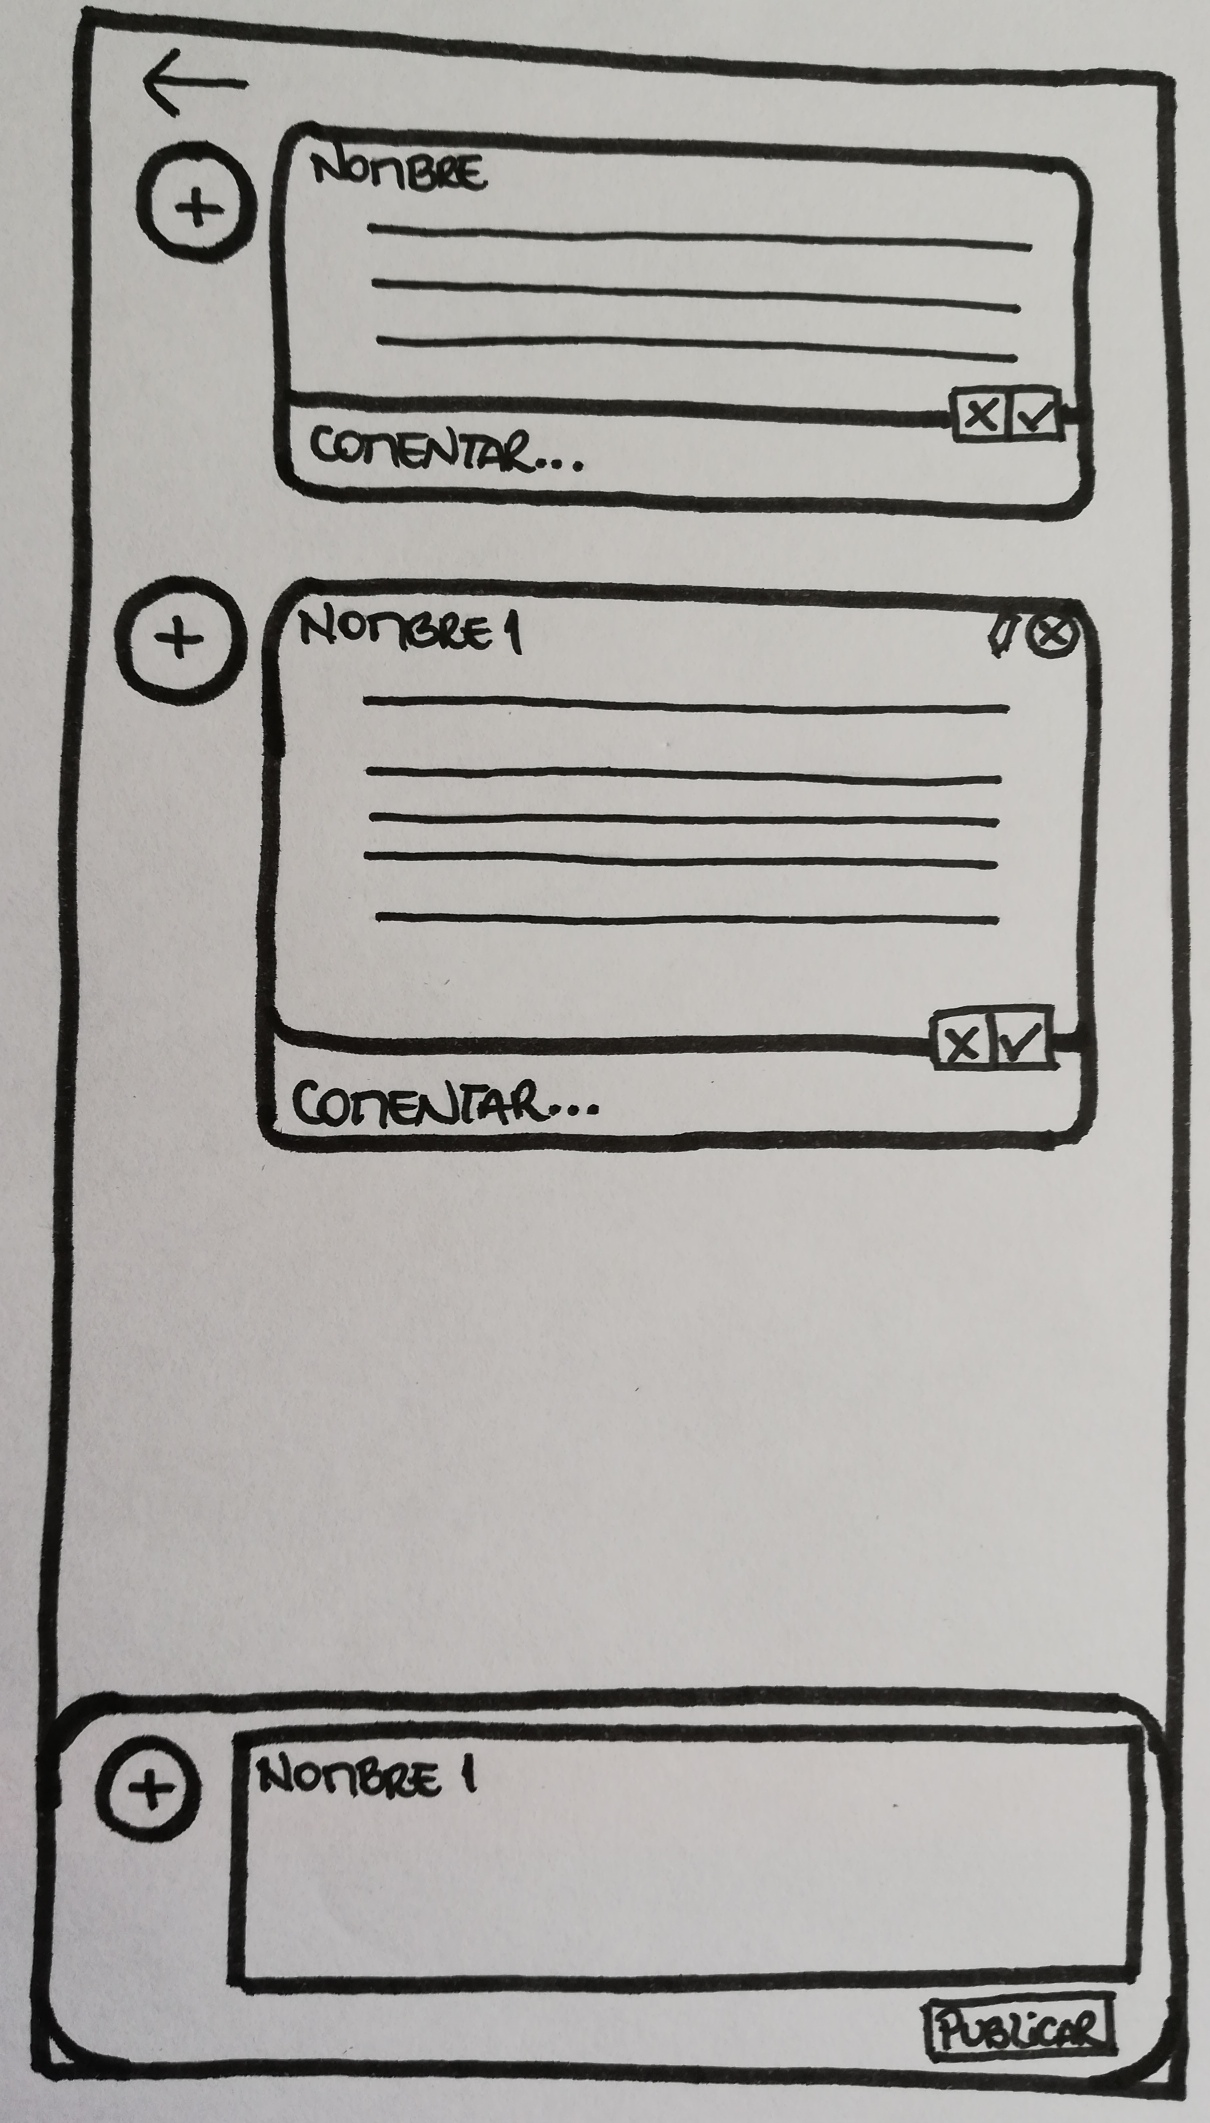 NOMBRE
COMENTAR...
NOMBRE 1
COMENTAR...
NOMBRE 1
PUBLICAR